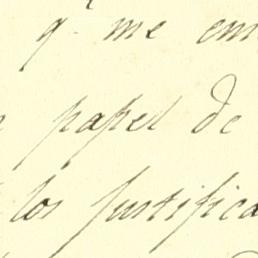 q.e me
papel de
los justifica